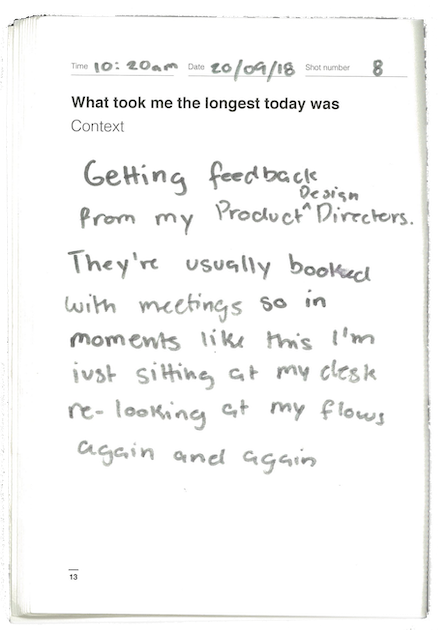 Time 10:20am Date 20/09/18 Shot number 8
What took me the longest today was
Context
Getting feedback
Design
from my Product ^ Directors.
They're usually booked
with meetings so in
moments like this I'm
just sitting at my desk
re-looking at my flows
again and again
13